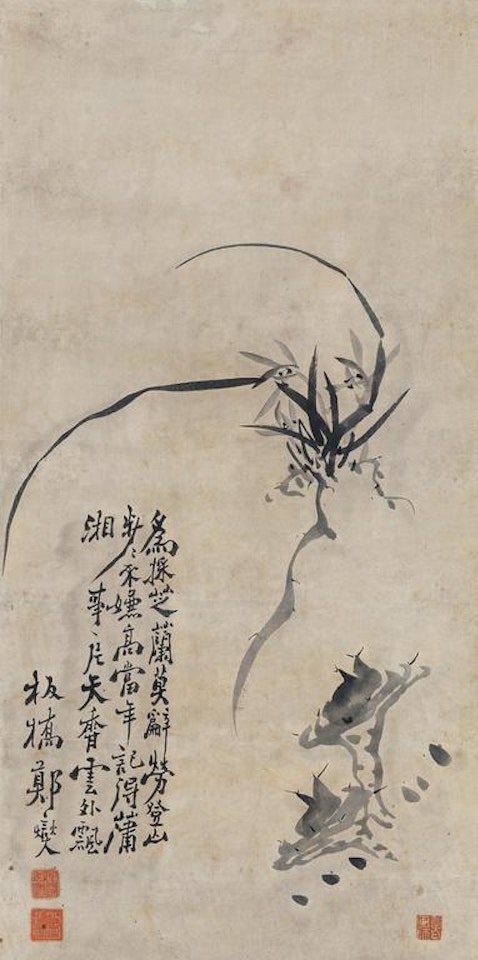 為採芝蘭莫辭勞登山
步〻不嫌高當年記得蕭
湘事天香雲外飄
板橋鄭燮